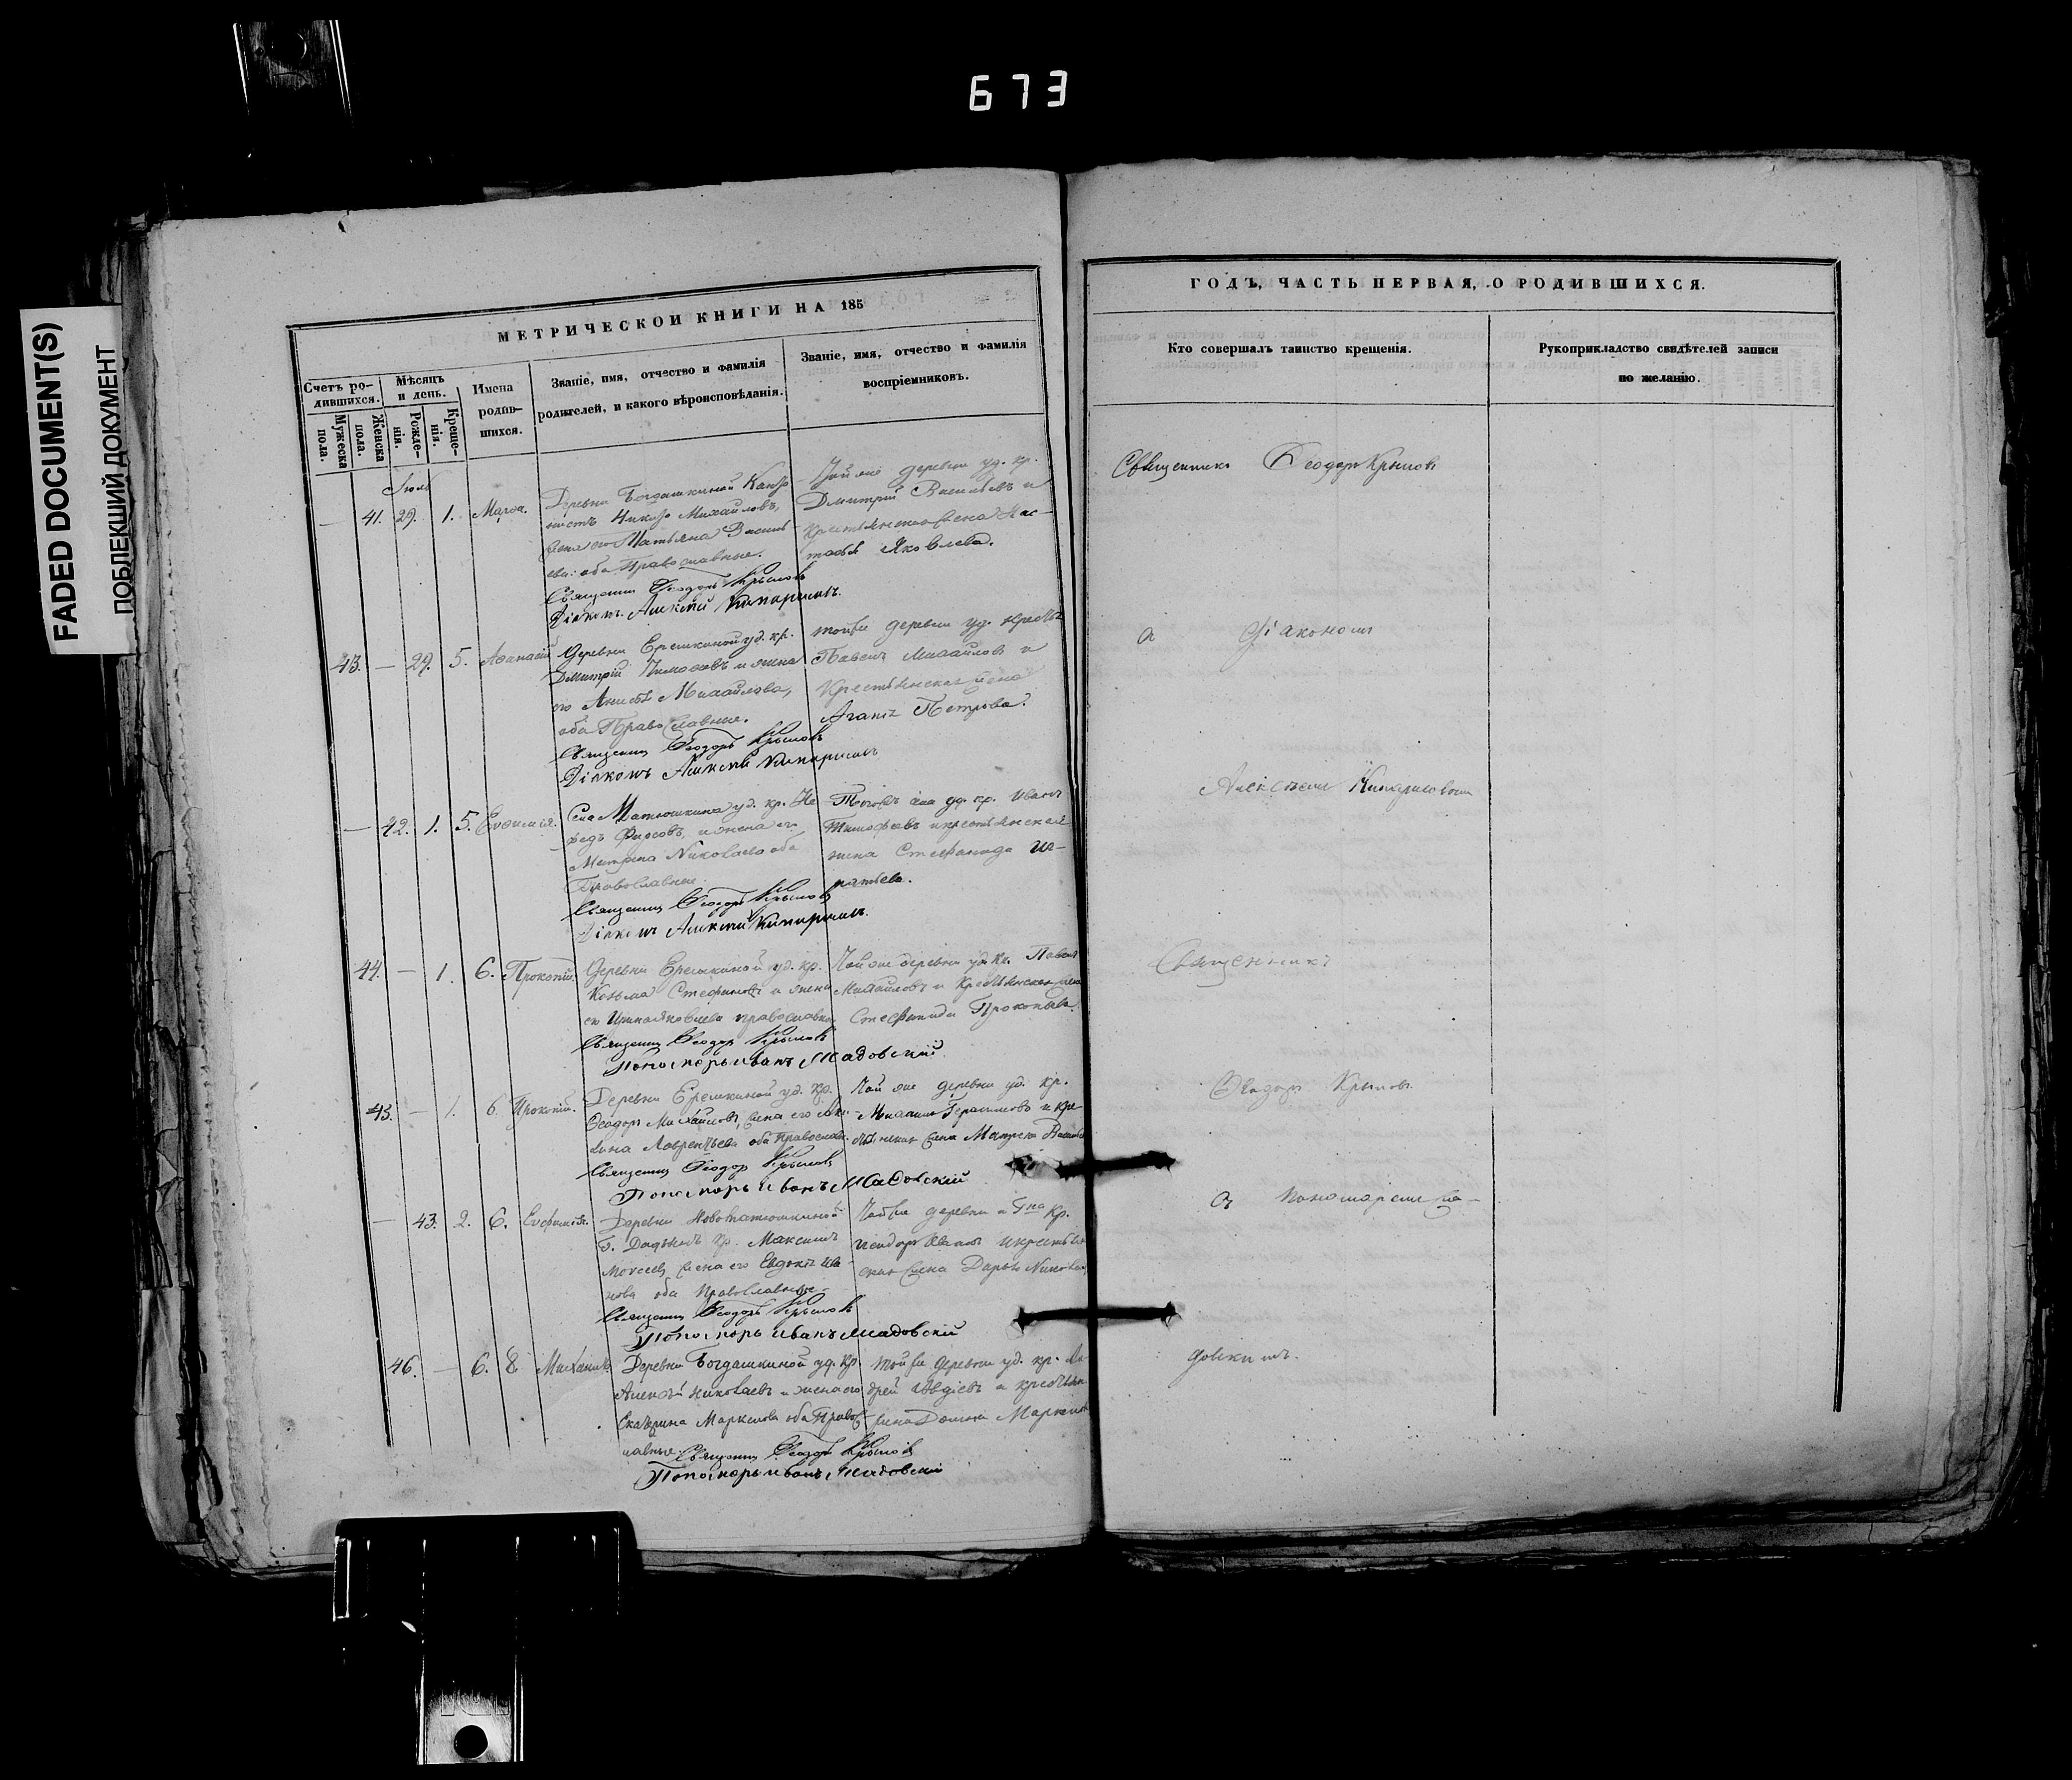 673
FADED DOCUMENT(S)
ПОБЛЕКШИЙ ДОКУМЕНТ
МЕТРИЧЕСКОЙ КНИГИ НА 185
Счетъ ро-
дившихся.
Мужеска
пола.
Женска
пола.
Мѣсяцъ
и день.
Рожде-
нія.
Креще-
нія.
Имена
родив-
шихся.
Званіе, имя, отчество и фамилія
родителей, и какого вѣроисповѣданія.
Званіе, имя, отчество и фамилія
воспріемниковъ.
— 41. 29. 1. Марѳа.
Деревни Богдашкиной
Михайловъ,
жена его Татьяна Василь
ева: оба Православные.
Священникъ Ѳеодоръ Крыловъ
Діаконъ Алексѣй Кипарисовъ.
Той же деревни уд. кр.
Дмитрий Васильевъ и
крестьянская жена Нас-
тасья Яковлева.
43. — 29. 5. Аѳанасій
Деревни Еремкиной уд. кр.
Дмитрій и жена
его Михайлова,
оба Православные.
Священникъ Ѳеодоръ Крыловъ
Діаконъ Алексѣй Кипарисовъ
Той же деревни уд. крест
Павелъ Михайловъ и
Крестьянская жена
Петрова.
— 42. 1. 5. Евѳимія.
Села Матюшкина уд. кр. Не
федъ Фирсовъ, и жена его
Матрена Николаева оба
Православные.
Священникъ Ѳеодоръ Крыловъ
Діаконъ Алексѣй Кипарисовъ.
Тогожъ села уд. кр. Иванъ
Тимофеевъ и крестьянская
жена Стефанида Иг-
натьева.
44. — 1. 6. Прокопій.
Деревни Еремкиной уд. кр.
Козьма Стефановъ и жена
его Ирина Яковлева православные
Священникъ Ѳеодоръ Крыловъ
Пономарь Иванъ Садовскій
Той же деревни уд. кр. Павелъ
Михайловъ и Крестьянская жена
Стефанида Прокопьева.
45. — 1. 6. Прокопій.
Деревни Еремкиной уд. кр.
Ѳеодоръ Михайловъ, жена его
Лаврентьева оба Православн.
Священникъ Ѳеодоръ Крыловъ
Пономарь Иванъ Садовскій
Той же деревни уд. кр.
Герасимовъ и кре-
стьянская жена Матрена
— 43. 2. 6. Евфимія.
Деревни Новоматюшкиной
Г. кр. Максимъ
Моисеевъ, жена его Евдокія Ива
нова оба Православные
Священникъ Ѳеодоръ Крыловъ
Пономарь Иванъ Садовскій
Той же деревни Г-на кр.
и крестьян
ская жена Дарья
46. — 6. 8. Михаилъ.
Деревни Богдашкиной уд. кр.
Алексѣй Николаевъ и жена его
Екатерина Маркелова оба Правос
лавные.
Священникъ Ѳеодоръ Крыловъ
Пономарь Иванъ Садовскій
Той же деревни уд. кр. Ан
дрей Авдіевъ и крестьян
жена
ГОДЪ, ЧАСТЬ ПЕРВАЯ, О РОДИВШИХСЯ.
Кто совершалъ таинство крещенія.
Рукоприкладство свидѣтелей записи
по желанію.
Священникъ Ѳеодоръ Крыловъ
съ Діакономъ
Алексѣемъ Кипарисовымъ
Священникъ
Ѳеодоръ Крыловъ
съ пономаремъ Са-
довскимъ.